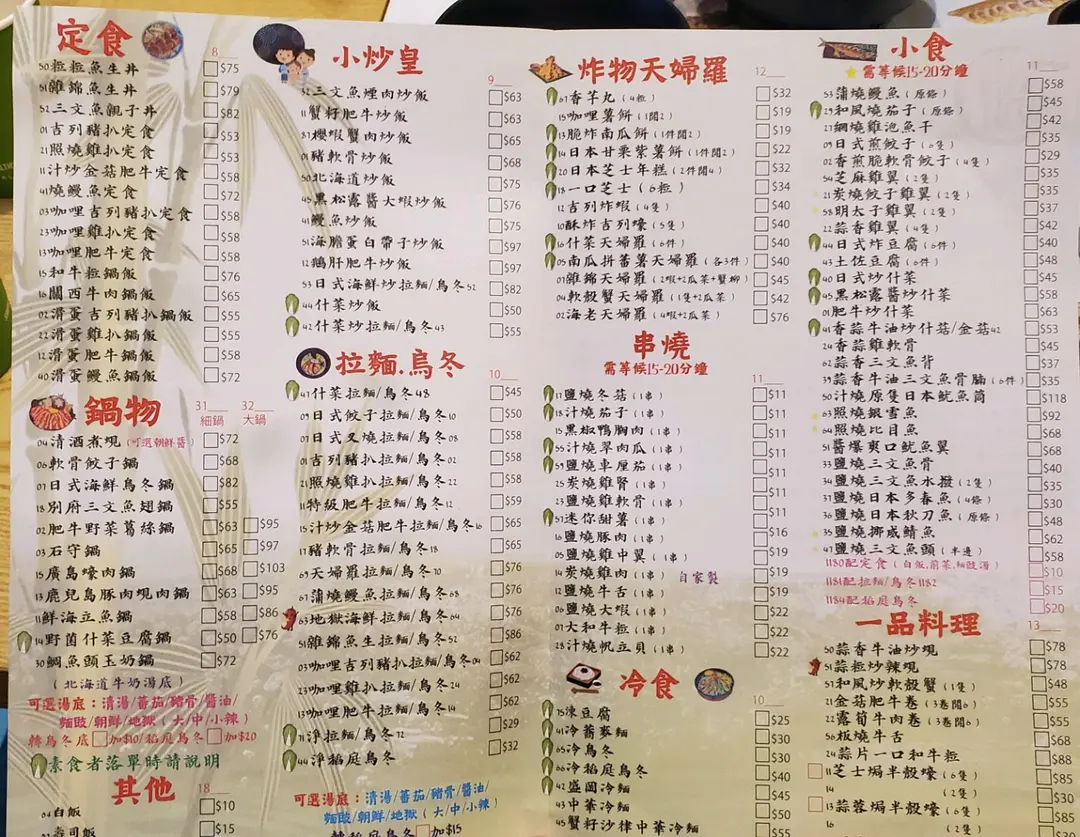 定食 8
50粒粒魚生丼 $75
51雜錦魚生丼 $79
52三文魚親子丼 $82
01吉列豬扒定食 $53
21照燒雞扒定食 $53
11汁炒金菇肥牛定食 $58
41燒鰻魚定食 $72
03咖哩吉列豬扒定食 $58
23咖哩雞扒定食 $58
13咖哩肥牛定食 $58
15和牛粒鍋飯 $76
16關西牛肉鍋飯 $65
02滑蛋吉列豬扒鍋飯 $55
22滑蛋雞扒鍋飯 $55
12滑蛋肥牛鍋飯 $58
40滑蛋鰻魚鍋飯 $72
鍋物 31 細鍋 32 大鍋
04清酒煮蜆(可選朝鮮醬) $72
06軟骨餃子鍋 $68
07日式海鮮烏冬鍋 $82
18別府三文魚翅鍋 $55
02肥牛野菜葛絲鍋 $63 $95
03石守鍋 $65 $97
15廣島蠔肉鍋 $68 $103
13鹿兒島豚肉蜆肉鍋 $63 $95
11鮮海立魚鍋 $58 $86
14野菌什菜豆腐鍋 $50 $76
30鯛魚頭玉奶鍋 $72
(北海道牛奶湯底)
可選湯底：清湯/蕃茄/豬骨/醬油/
麵豉/朝鮮/地獄(大/中/小辣)
轉烏冬底 加$10/稻庭烏冬 加$20
素食者落單時請說明
其他 18
04白飯 $10
壽司飯 $15
小炒皇 9
32三文魚煙肉炒飯 $63
11蟹籽肥牛炒飯 $63
87櫻蝦蟹肉炒飯 $65
01豬軟骨炒飯 $68
50北海道炒飯 $75
45黑松露醬大蝦炒飯 $76
41鰻魚炒飯 $75
51海膽蛋白帶子炒飯 $97
12鵝肝肥牛炒飯 $97
53日式海鮮炒拉麵/烏冬52 $82
44什菜炒飯 $50
42什菜炒拉麵/烏冬43 $55
拉麵.烏冬 10
47什菜拉麵/烏冬48 $45
09日式餃子拉麵/烏冬10 $50
07日式叉燒拉麵/烏冬08 $58
01吉列豬扒拉麵/烏冬02 $58
21照燒雞扒拉麵/烏冬22 $58
11特級肥牛拉麵/烏冬12 $59
15汁炒金菇肥牛拉麵/烏冬16 $65
17豬軟骨拉麵/烏冬18 $65
69天婦羅拉麵/烏冬70 $76
67蒲燒鰻魚拉麵/烏冬68 $76
63地獄海鮮拉麵/烏冬64 $76
51雜錦魚生拉麵/烏冬52 $86
03咖哩吉列豬扒拉麵/烏冬04 $62
23咖哩雞扒拉麵/烏冬24 $62
13咖哩肥牛拉麵/烏冬14 $62
71淨拉麵/烏冬72 $29
44淨稻庭烏冬 $32
可選湯底：清湯/蕃茄/豬骨/醬油/
麵豉/朝鮮/地獄(大/中/小辣)
轉稻庭烏冬 加$15
炸物天婦羅 12
67香芋丸(4粒) $32
15咖哩薯餅(1開2) $19
13脆炸南瓜餅(1件開2) $19
14日本甘栗紫薯餅(1件開2) $22
20日本芝士年糕(2件開4) $32
18一口芝士(6粒) $34
12吉列炸蝦(4隻) $40
10酥炸吉列蠔(5隻) $40
16什菜天婦羅(6件) $40
05南瓜拼蕃薯天婦羅(各3件) $40
07雜錦天婦羅(2蝦+2瓜菜+蟹柳) $45
04軟殼蟹天婦羅(1隻+2瓜菜) $42
02海老天婦羅(4蝦+2瓜菜) $76
串燒
需等候15-20分鐘 11
17鹽燒冬菇(1串) $11
18汁燒茄子(1串) $11
15黑椒鴨胸肉(1串) $11
55汁燒翠肉瓜(1串) $11
59鹽燒車厘茄(1串) $11
25炭燒雞腎(1串) $11
23鹽燒雞軟骨(1串) $12
57迷你甜薯(1串) $11
16鹽燒豚肉(1串) $16
05鹽燒雞中翼(1串) $19
14炭燒雞肉(1串)自家製 $19
12鹽燒牛舌(1串) $22
06鹽燒大蝦(1串) $19
07大和牛粒(1串) $22
28汁燒帆立貝(1串) $22
冷食 10
75凍豆腐 $25
41冷蕎麥麵 $30
65冷烏冬 $30
66冷稻庭烏冬 $40
42盛岡冷麵 $45
43中華冷麵 $50
45蟹籽沙律中華冷麵 $55
小食
需等候15-20分鐘 11
53蒲燒鰻魚(原條) $58
29和風燒茄子(原條) $45
27網燒雞泡魚干 $42
09日式煎餃子(6隻) $35
02香煎脆軟骨餃子(4隻) $29
54芝麻雞翼(2隻) $35
21炭燒餃子雞翼(2隻) $35
58明太子雞翼(2隻) $37
22蒜香雞翼(4隻) $42
44日式炸豆腐(6件) $40
43土佐豆腐(6件) $48
40日式炒什菜 $45
45黑松露醬炒什菜 $58
01肥牛炒什菜 $63
41香蒜牛油炒什菇/金菇42 $53
24香蒜雞軟骨 $45
62蒜香三文魚背 $37
39蒜香牛油三文魚骨腩(6件) $35
50汁燒原隻日本魷魚筒 $118
63照燒銀雪魚 $92
64照燒比目魚 $68
51醬爆爽口魷魚翼 $68
33鹽燒三文魚骨 $40
34鹽燒三文魚水撥(2隻) $35
37鹽燒日本多春魚(4條) $30
36鹽燒日本秋刀魚(原條) $48
35鹽燒挪威鯖魚 $62
47鹽燒三文魚頭(半邊) $58
1180配定食(白飯,前菜,麵豉湯) $10
1181配拉麵/烏冬1182 $15
1184配稻庭烏冬 $20
一品料理 13
50蒜香牛油炒蜆 $78
51蒜粒炒辣蜆 $78
57和風炒軟殼蟹(1隻) $48
21金菇肥牛卷(3卷開6) $55
22露荀牛肉卷(3卷開6) $55
56板燒牛舌 $68
24蒜片一口和牛粒 $88
11芝士焗半殼蠔(6隻) $85
14 (2隻) $30
13蒜蓉焗半殼蠔(6隻) $85
16 (2隻)